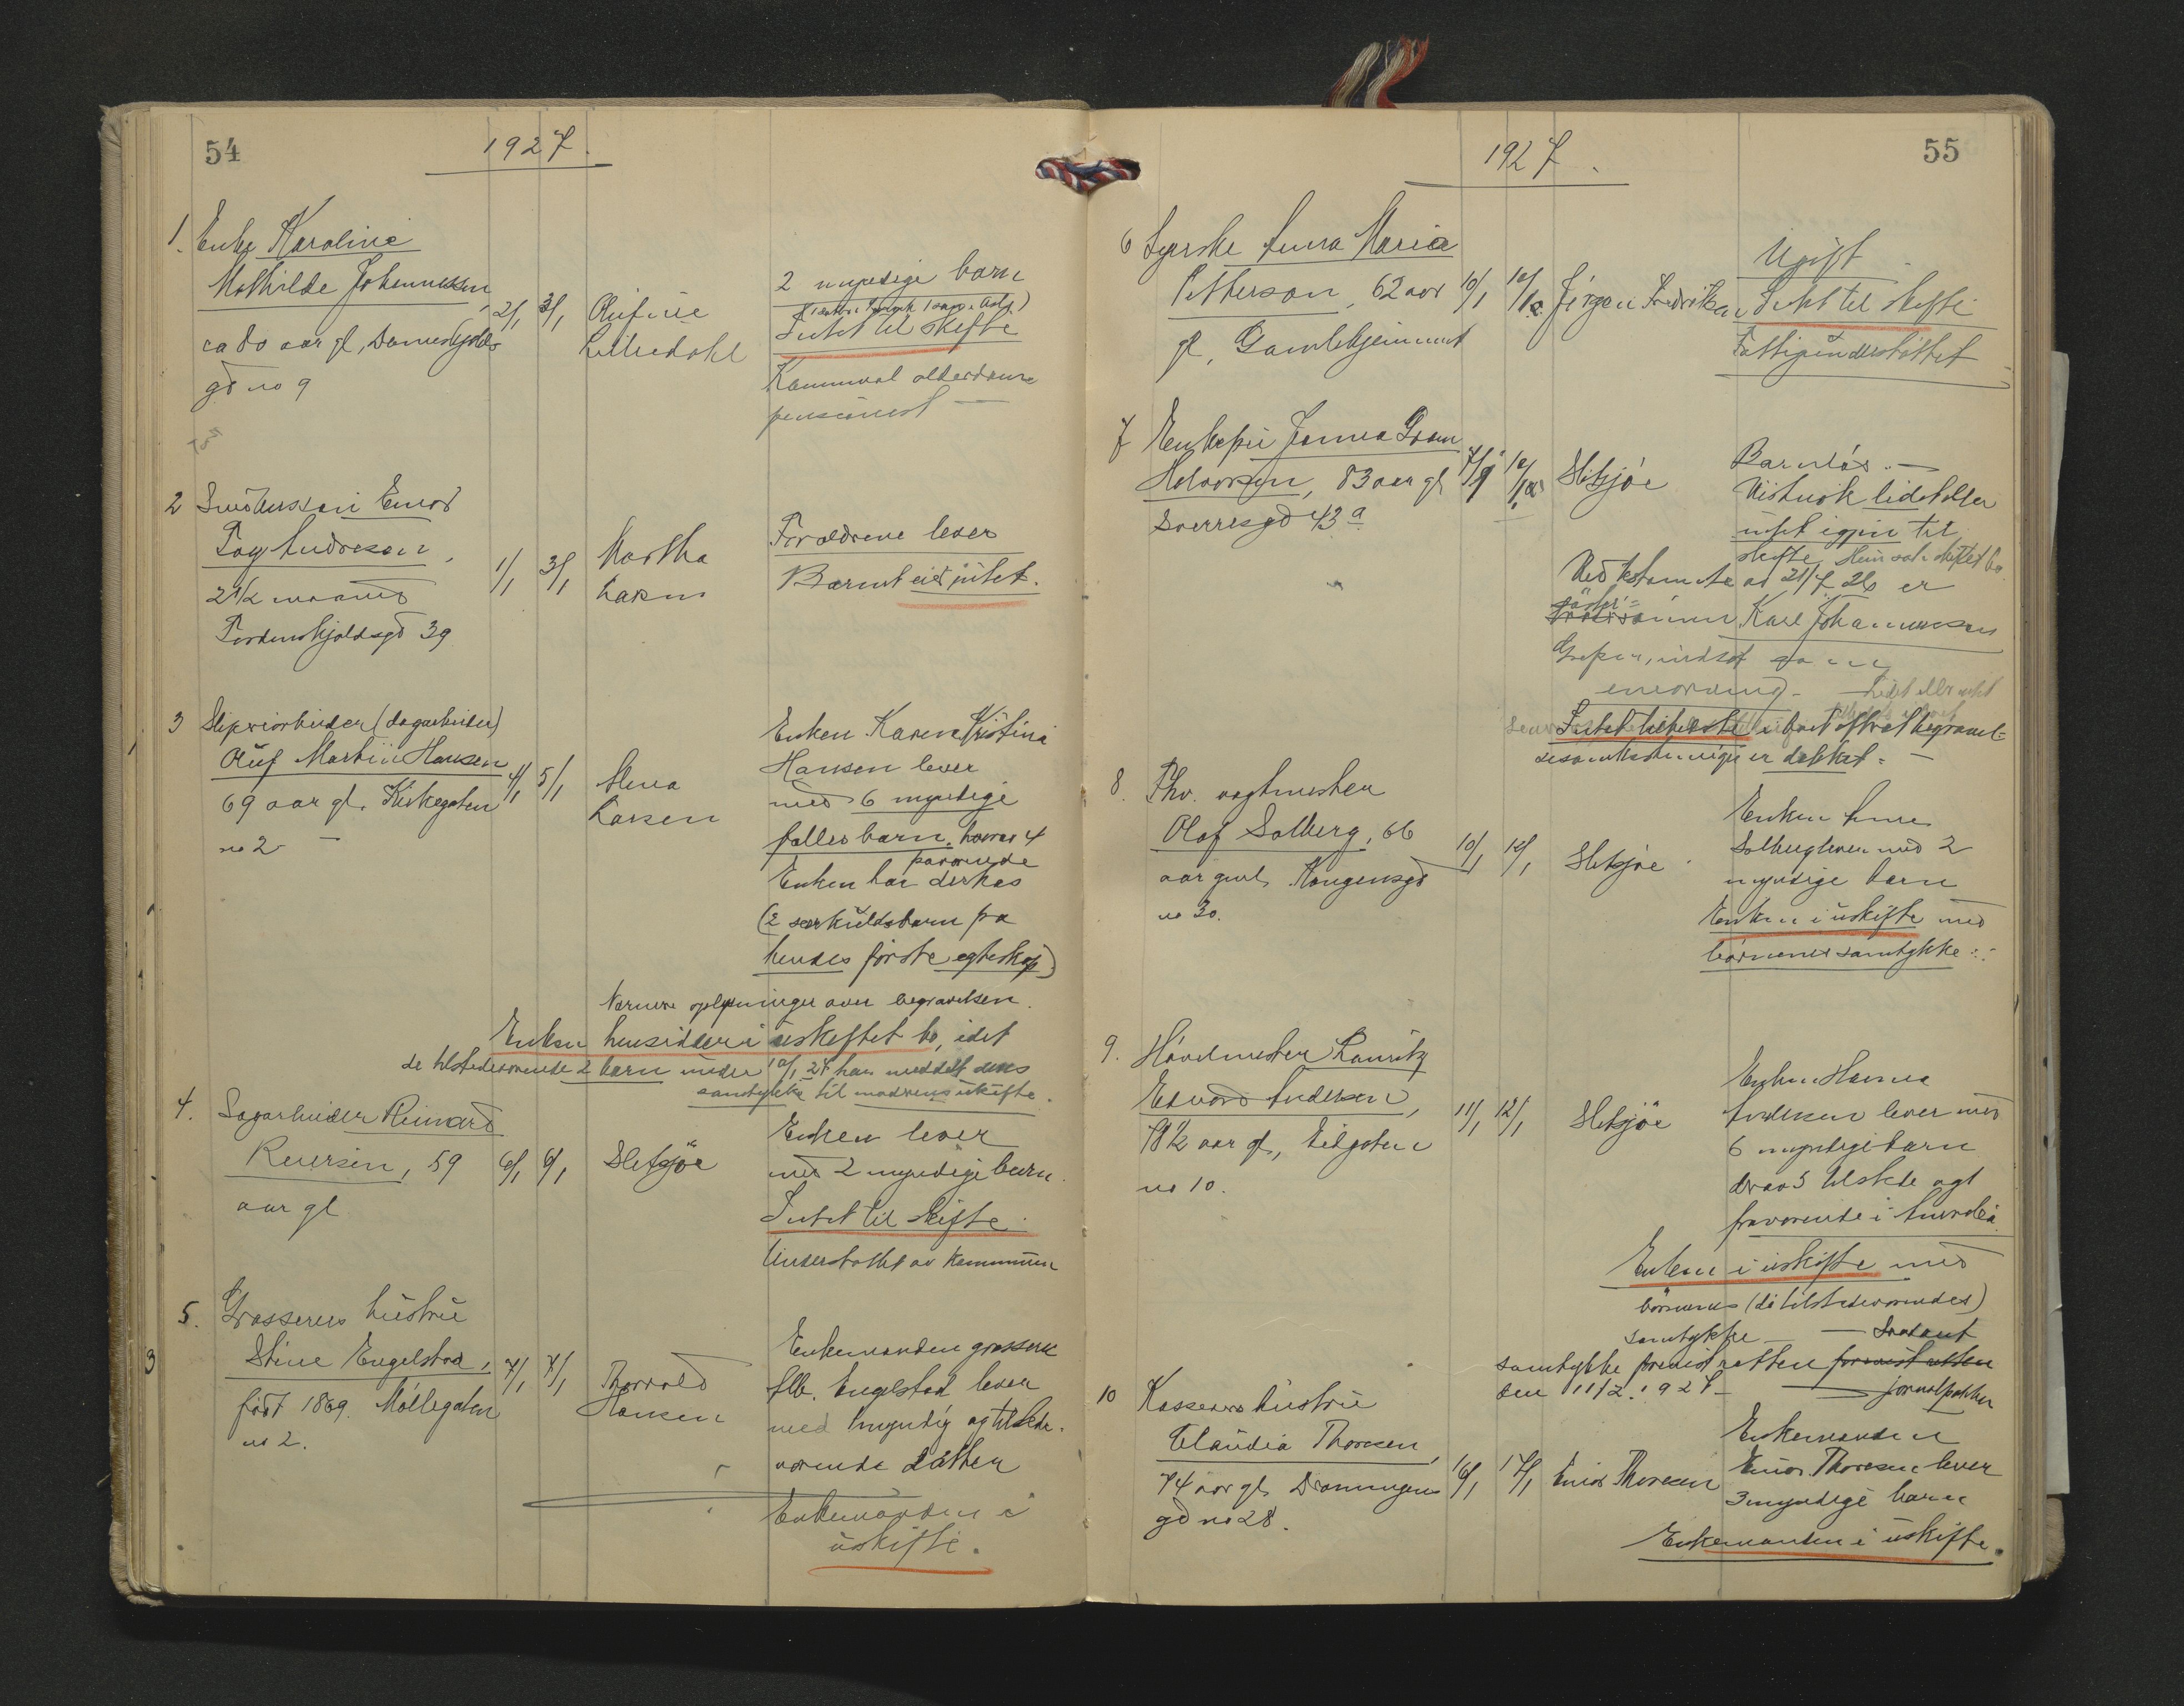 54
1927.
1. Enke Karoline
Mathilde Johannessen,
ca 80 aar gl, Tordenskjolds
gd no 9
2/1 3/1
Rufine
Lilledahl
2 myndige barn
Intet til skifte
Kommunal alderdoms
pensionist —
2 Smedsvssøn Einar
Tog Andresen,
2 1/2 maaned
Tordenskjoldsgd 39
1/1 3/1
Martha
Larsen
Forældrene lever
Barnet eiet intet.
3 Sliperiarbeider (dagarbeider)
Oluf Martin Hansen
69 aar gl. Kirkegaten
no 2 —
4/1 5/1
Alma
Larsen
Enken Karen Kristine
Hansen lever
med 6 myndige
fælles barn, hvorav 4
fraværende
Enken har derhos
(2 særkuldsbarn fra
hendes første egteskap)
Nærmere oplysninger over begravelsen.
Enken hensidder i uskiftet bo, idet
de tilstedeværende 2 barn under 10/1 27 har meddelt deres
samtykke til modrens uskifte.
4. Sagarbeider Reinard
Reiersen, 59
aar gl
6/1 6/1
Sletsjøe
Enken lever
med 2 myndige barn.
Intet til skifte.
Understøttet av kommunen
5. Grosserers hustru
Stine Engelstad,
født 1869. Møllegaten
no 2.
7/1 7/1
Thorvald
Hansen
Enkemanden grosserer
Engelstad lever
med 1 myndig og tilstede-
værende datter
Enkemanden i
uskifte.
55
1927.
6 Syerske Anna Maria
Petterson, 62 aar
gl, Gamlehjemmet
10/1 10/1
Jørgen Fredriksen
Ugift
Intet til skifte
Fattigunderstøttet
7 Enkefru Janna Gram
Halvorsen, 83 aar gl
Sverresgd 43 a
7/1 10/1
Sletsjøe
Barnløs. —
Vistnok lidet eller
intet igjen til
skifte. Hun sat i uskiftet bo
Ved testamente av 21/7 26 er
søster-
sønnen Karl Johannessen
Grefsen, indsat som
enearving. — Lidet eller intet
Intet tilbake i boet efterat begravel-
sesomkostninger er dækket. —
8. Fhv. vagtmester
Olaf Solberg, 66
aar gml, Kongensgd
no 30.
10/1 12/1
Sletsjøe
Enken Anne
Solberg lever med 2
myndige barn
Enken i uskifte med
børnenes samtykke.
9. Høvelmester Lauritz
Edvard Andersen,
78 1/2 aar gl, Eilgaten
no 10.
11/1 12/1
Sletsjøe
Enken Hanna
Andersen lever med
6 myndige barn
derav 5 tilstede og 1
fraværende i Amerika.
Enken i uskifte med
børnenes (de tilstedeværendes)
samtykke — Saadant
samtykke fremvist retten forevist retten
den 11/2 1927 — journalpakken
10 Kasserers hustru
Claudia Thoresen,
74 aar gl, Dronningens
gd no 28.
16/1 17/1
Einar Thoresen
Enkemanden
Einar Thoresen lever
3 myndige barn
Enkemanden i uskifte.